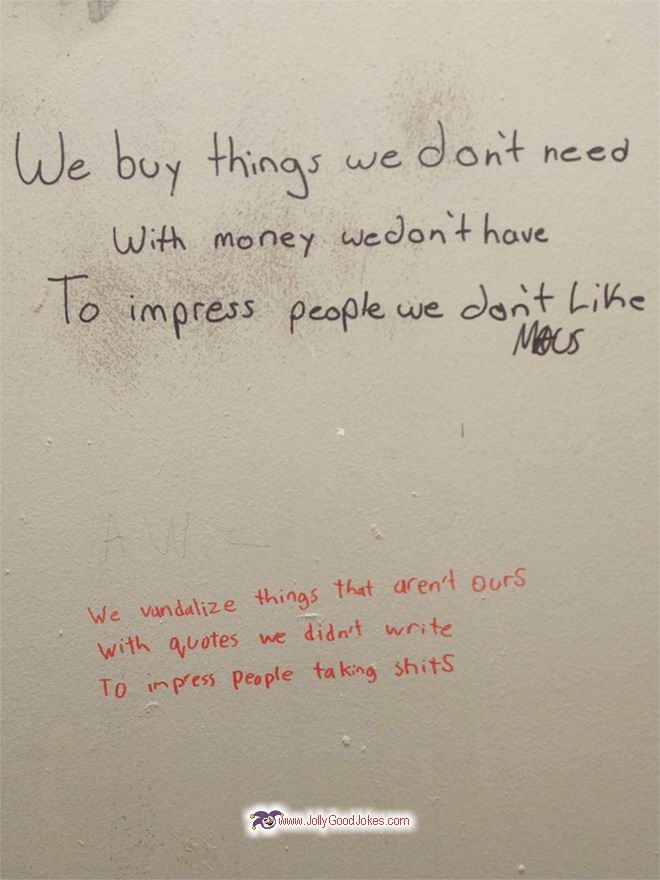 We buy things we don't need
With money we don't have
To impress people we don't Like
We vandalize things that aren't ours
With quotes we didn't write
To impress people taking shits
www.JollyGoodJokes.com